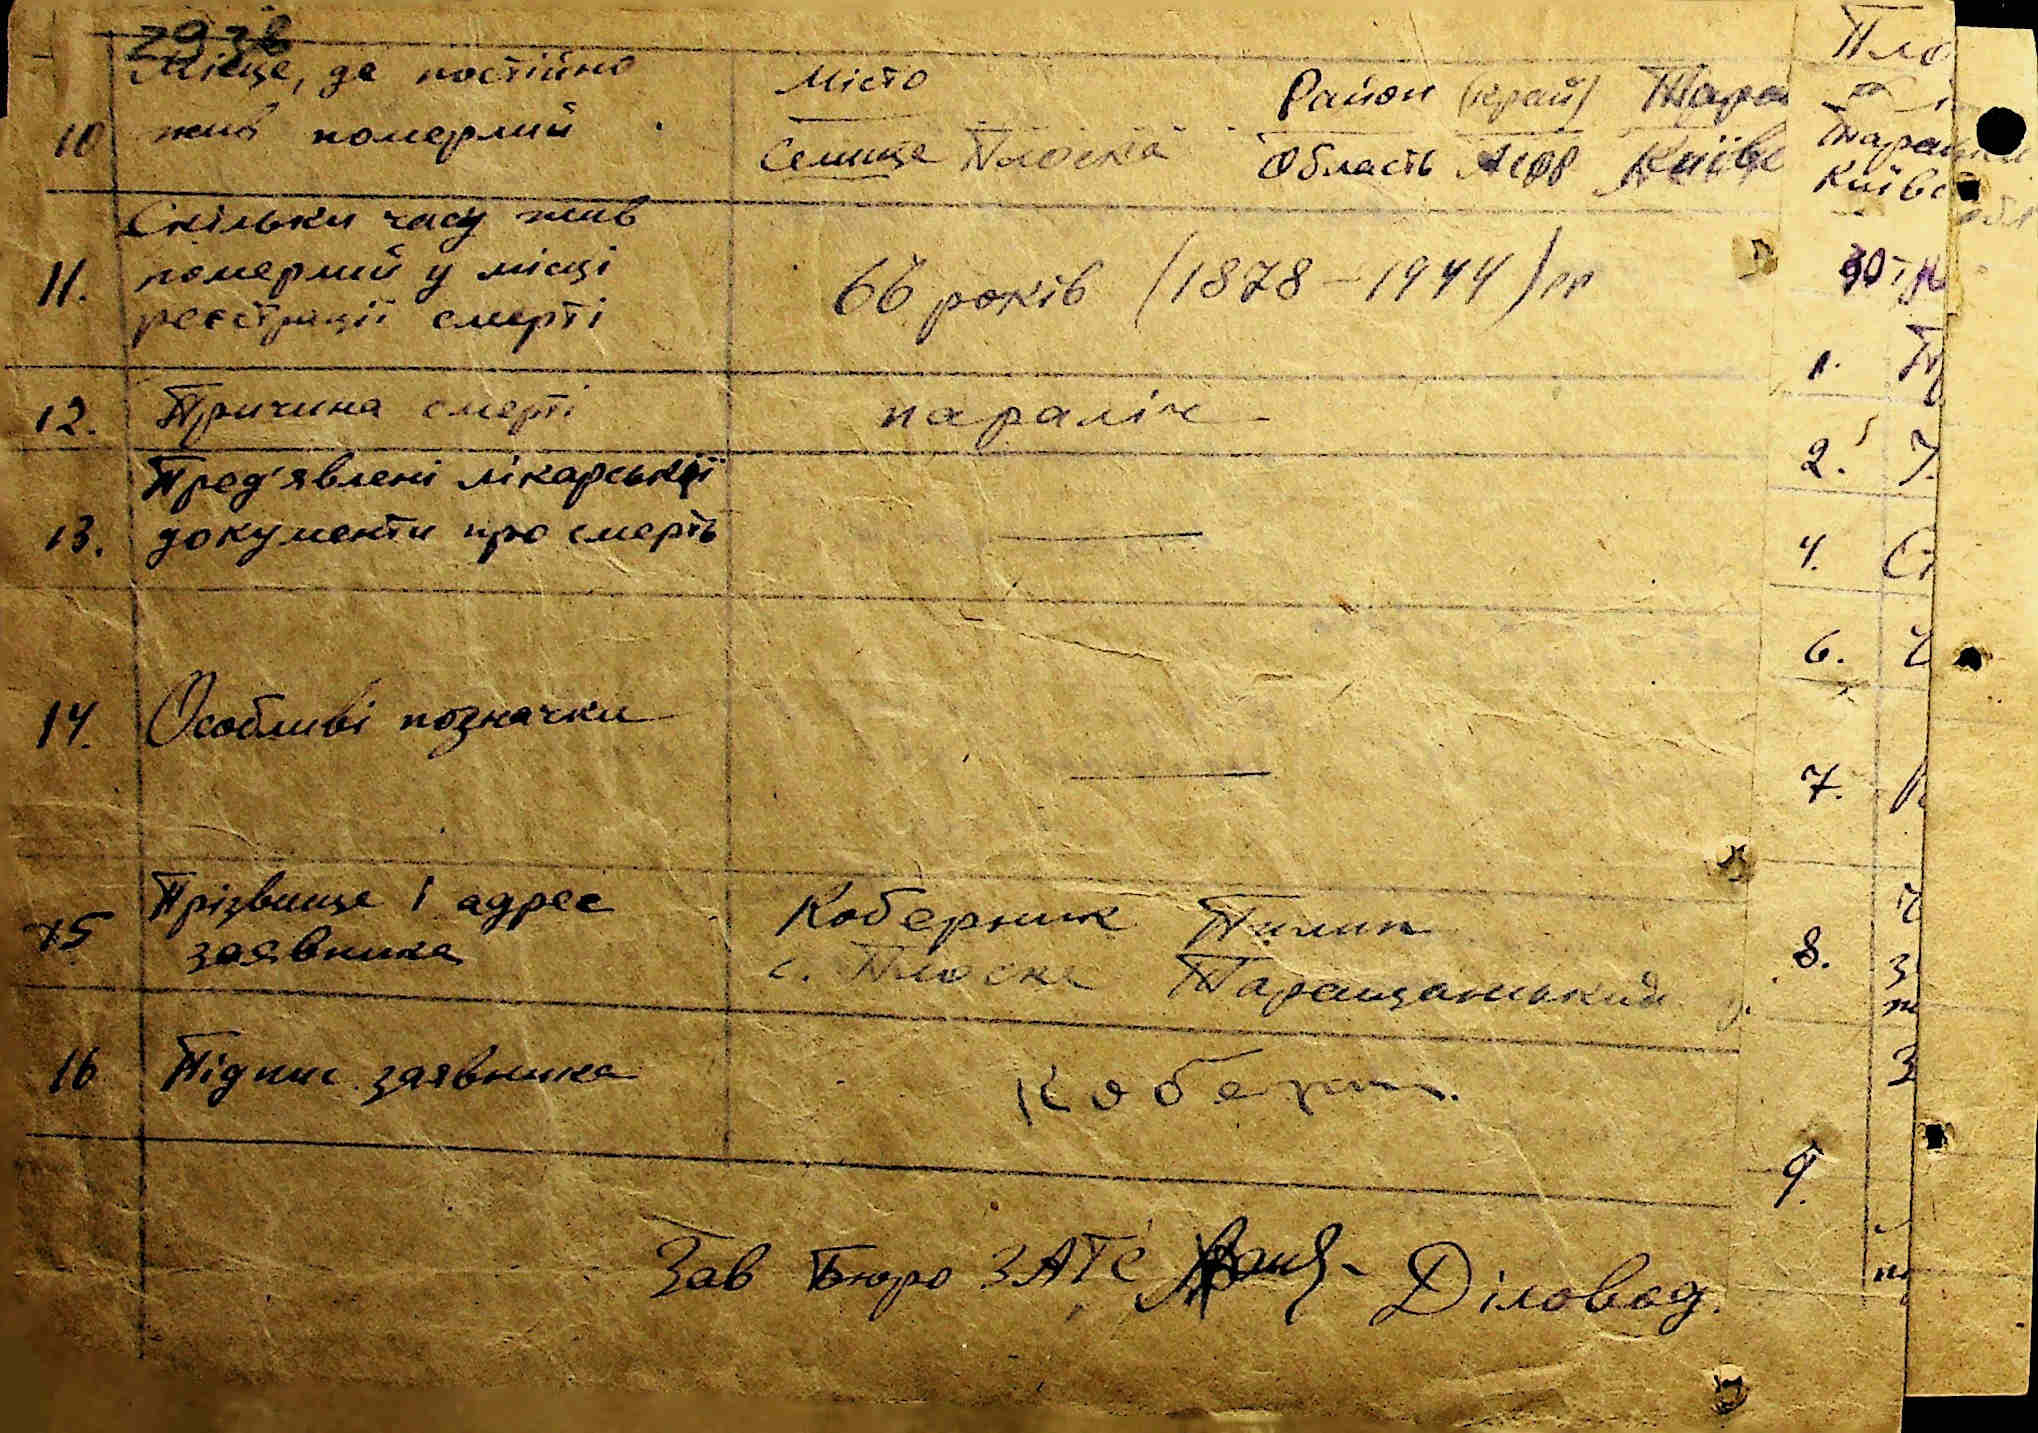 293в
10 Місце, де постійно
жив помермий
Місто
Селище Плоска
Район (край) Тара
Область АСРР Київс
11. Скільки часу жив
помермий у місці
реєстрації смерті
66 років (1878 – 1944) рр
12. Причина смерті
параліч
13. Пред'явлені лікарські
документи про смерть
14. Особливі позначки
15 Прізвище і адрес
заявника
Коберник Пилип
с. Плоске Таращанський р.
16 Підпис заявника
Коберн.
Зав Бюро ЗАГС Діловод.
Пло
Таращан
Київс
обл
1. П
2.
4. Ст
6.
7.
8.
9.